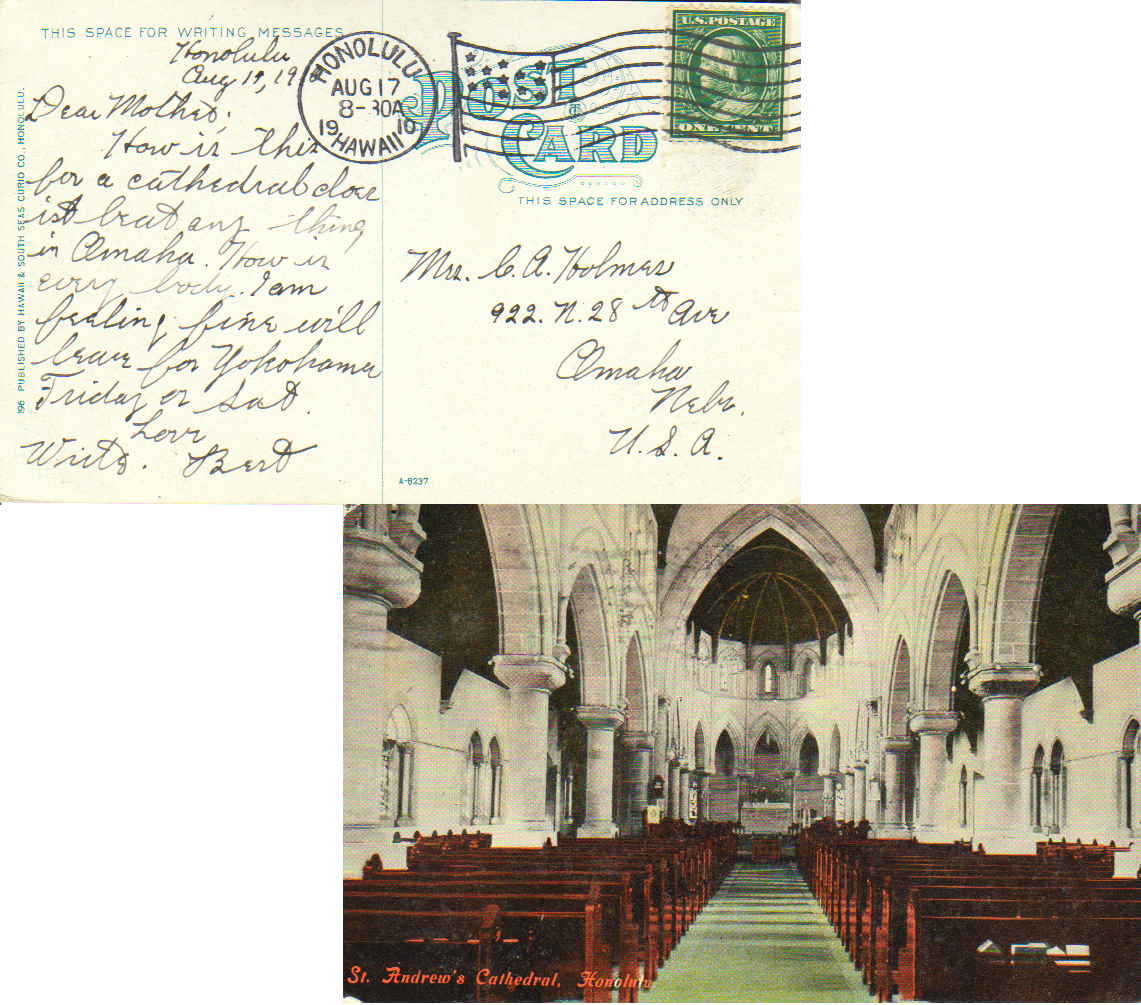 THIS SPACE FOR WRITING MESSAGES
Honolulu
Aug 17, 19
Dear Mother.
How is this
for a cathedral dose
ist beat any thing
in Omaha. How is
every body. I am
feeling fine will
leave for Yokohama
Friday or Sat.
Love
Write. Bert
196 PUBLISHED BY HAWAII & SOUTH SEAS CURIO CO., HONOLULU.
HONOLULU
AUG 17
8-30A
19 10
HAWAII
POST
CARD
U.S. POSTAGE
ONE CENT
THIS SPACE FOR ADDRESS ONLY
Mrs. C. A. Holmes
922. N. 28th Ave
Omaha
Nebr.
U. S. A.
A-8237
St. Andrew's Cathedral, Honolulu